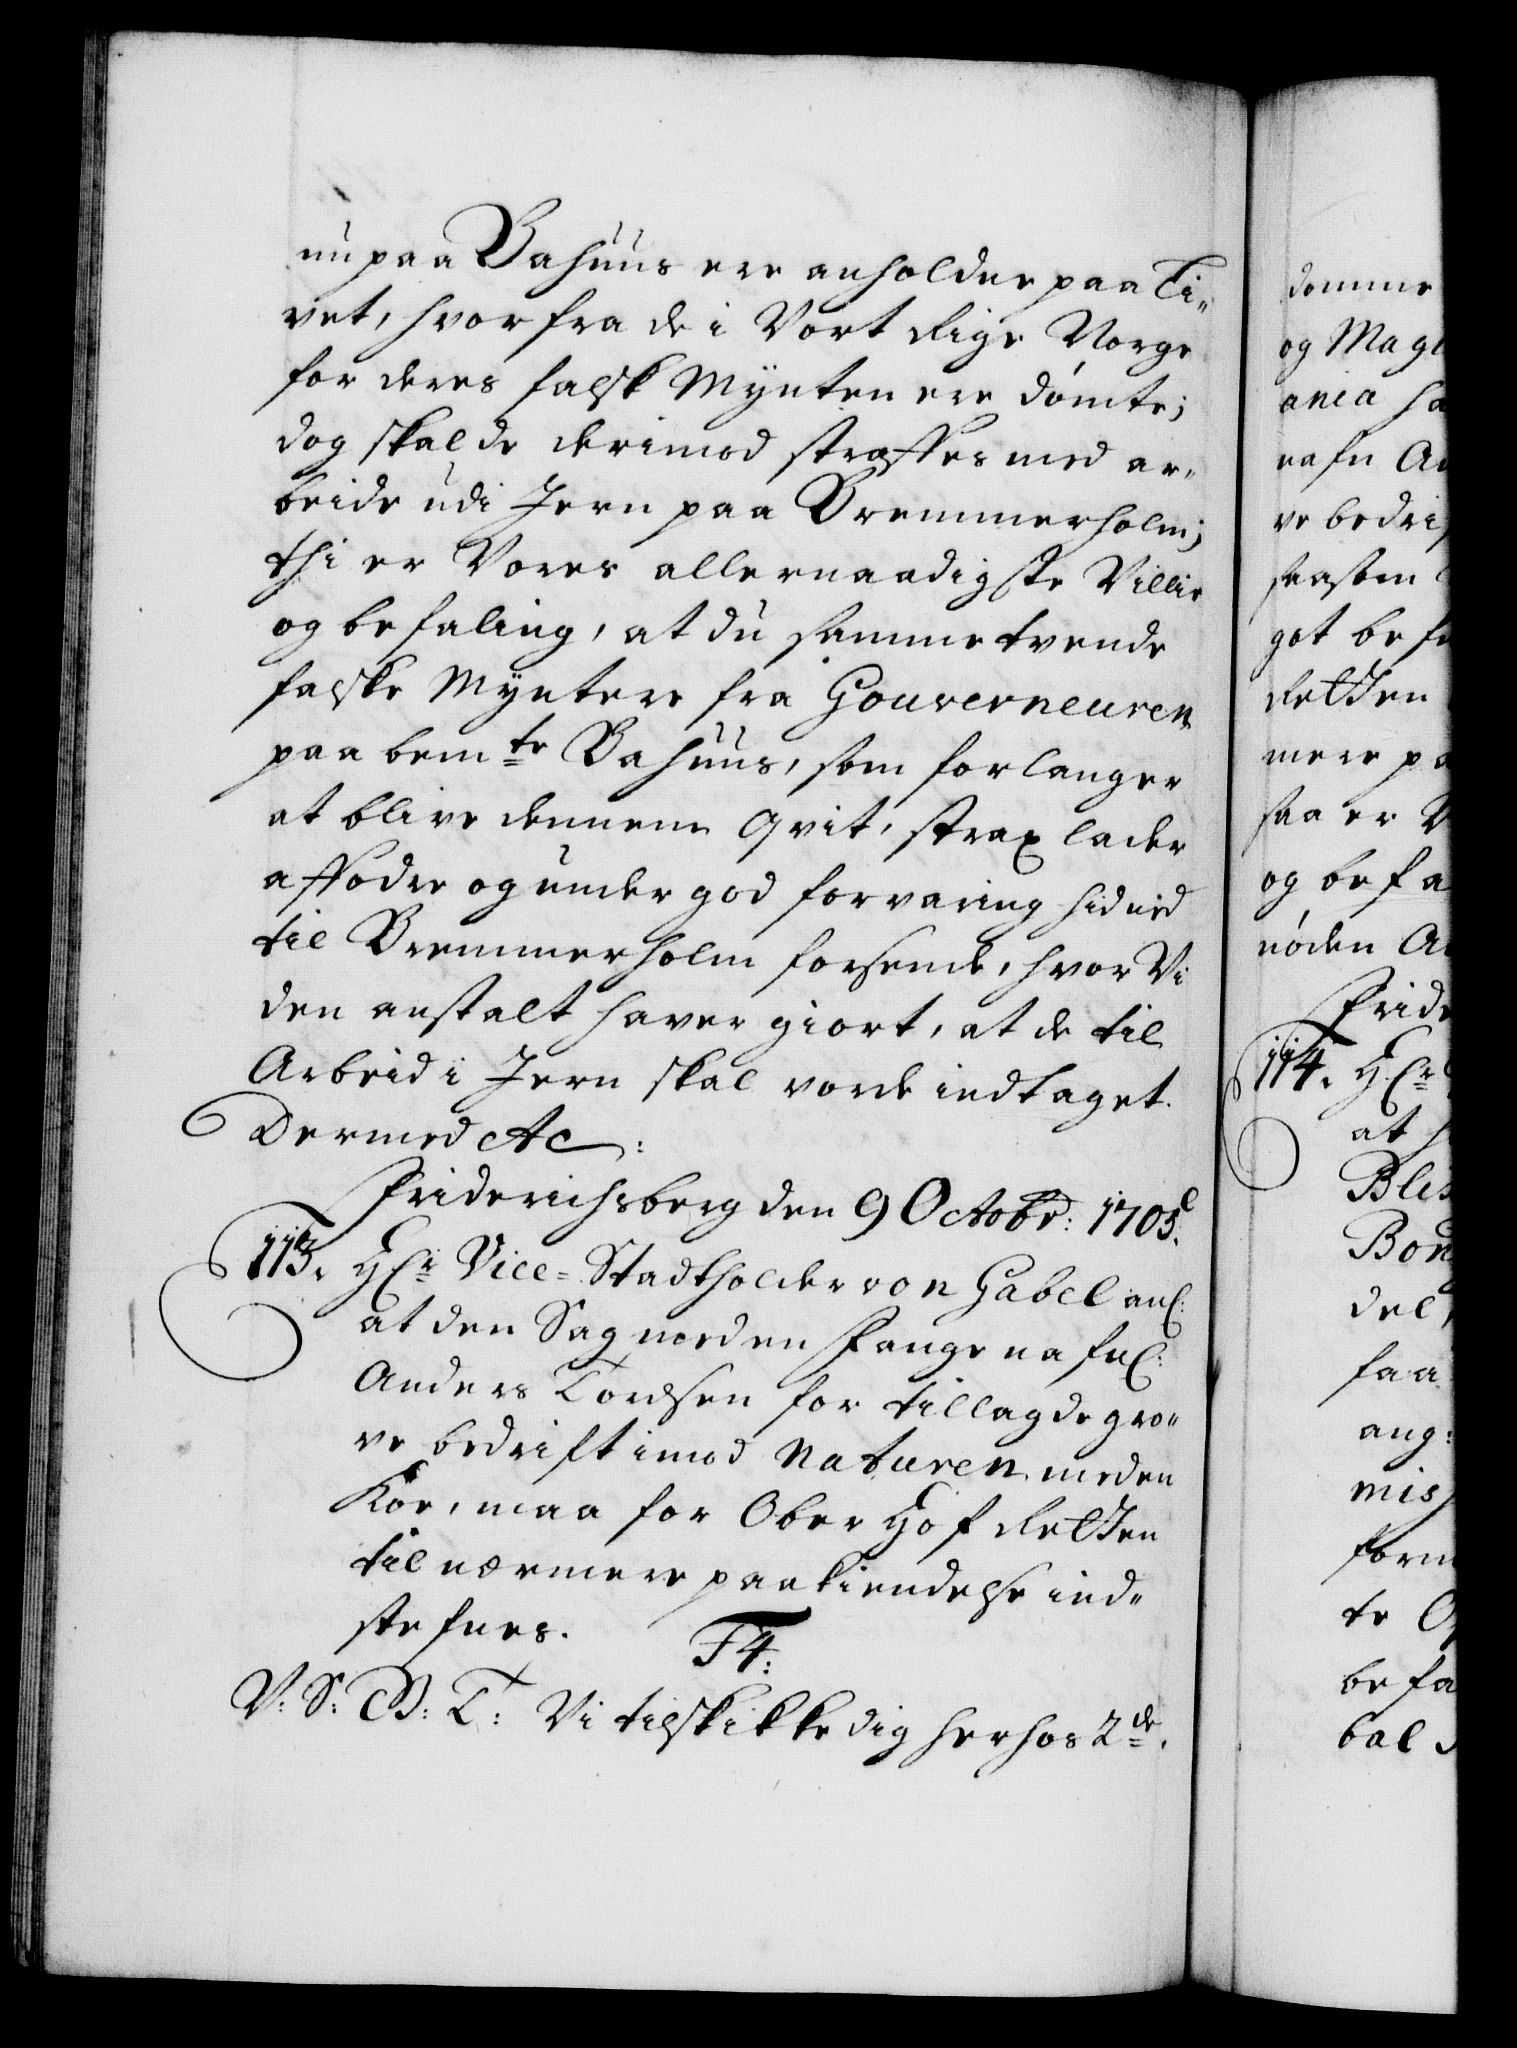 nu paa Bahuus ere anholdne paa Li„
vet, hvorfra de i Vort Rige Norge
for deres falsk Mÿnten ere dömte;
dog skal de derimod straffes med ar„
beide udi Jern paa Bremmerholm;
thi er Vores allernaadigste Villie
og befaling, at du samme tvende
falske Mÿntere fra Gouverneuren
paa bemte Bahuus, som forlanger
at blive dennem qvit, strax lader
affodre og under god forvaring hid ned
til Bremmerholm forsende, hvor Vi
den anstalt haver giort, at de til
Arbeid i Jern skal vorde indtaget.
Dermed &c:
Friderichsberg den 9 Octobr: 1705.
113. H Vice=Stadtholder von Gabel anl:
at den Sag mod en Fange nafnl:
Anders Tordsen for tillagde gro„
ve bedrift imod Naturen med en
Koe, maa for Ober Hof Retten
til nærmere paakiendelse ind„
stefnes.
F4:
V: S: G: T: Vi tilskikke dig herhos 2de.
domme
og Mag
ania ha
nafn A
ve bedri
saasom
got befi
Retten
mere pa
saa er V
og befa
nöden A
Frid
114. H
at h
Blis
Bon
del,
faa
ang:
mis
form
te O
befa
bal